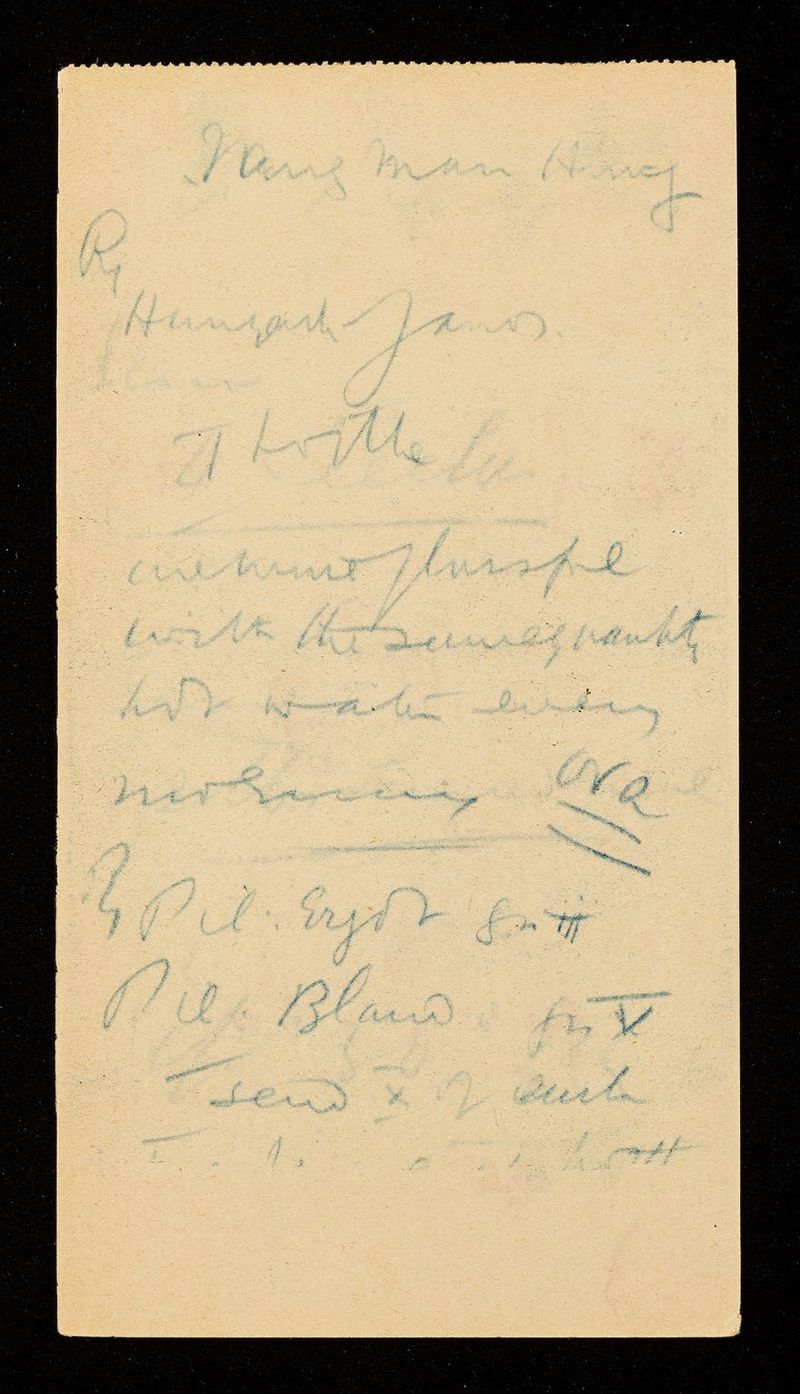 Man
Rx
Hunyadi Janos.
Ī bottle
one wineglassful
with the same quantity
hot water every
morning
Rx Pil. Ergot gr iii
Pil. Blaud gr V
send X of each